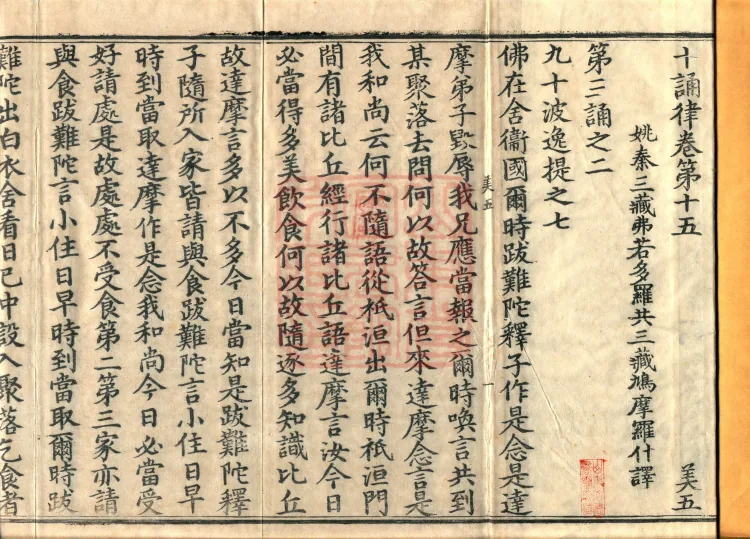 十誦律卷第十五 美五
姚秦三藏弗若多羅共三藏鳩摩羅什譯
第三誦之二
九十波逸提之七
佛在舍衞國爾時跋難陀釋子作是念是達
美五 一
摩弟子毀辱我兄應當報之爾時喚言共到
某聚落去問何以故答言但來達摩念言是
我和尚云何不隨語從祇洹出爾時祇洹門
間有諸比丘經行諸比丘語達摩言汝今日
必當得多美飲食何以故隨逐多知識比丘
故達摩言多以不多今日當知是跋難陀釋
子隨所入家皆請與食跋難陀言小住日早
時到當取達摩作是念我和尚今日必當受
好請處是故處處不受食第二第三家亦請
與食跋難陀言小住日早時到當取爾時跋
難陀出白衣舍看日已中設入聚落乞食者